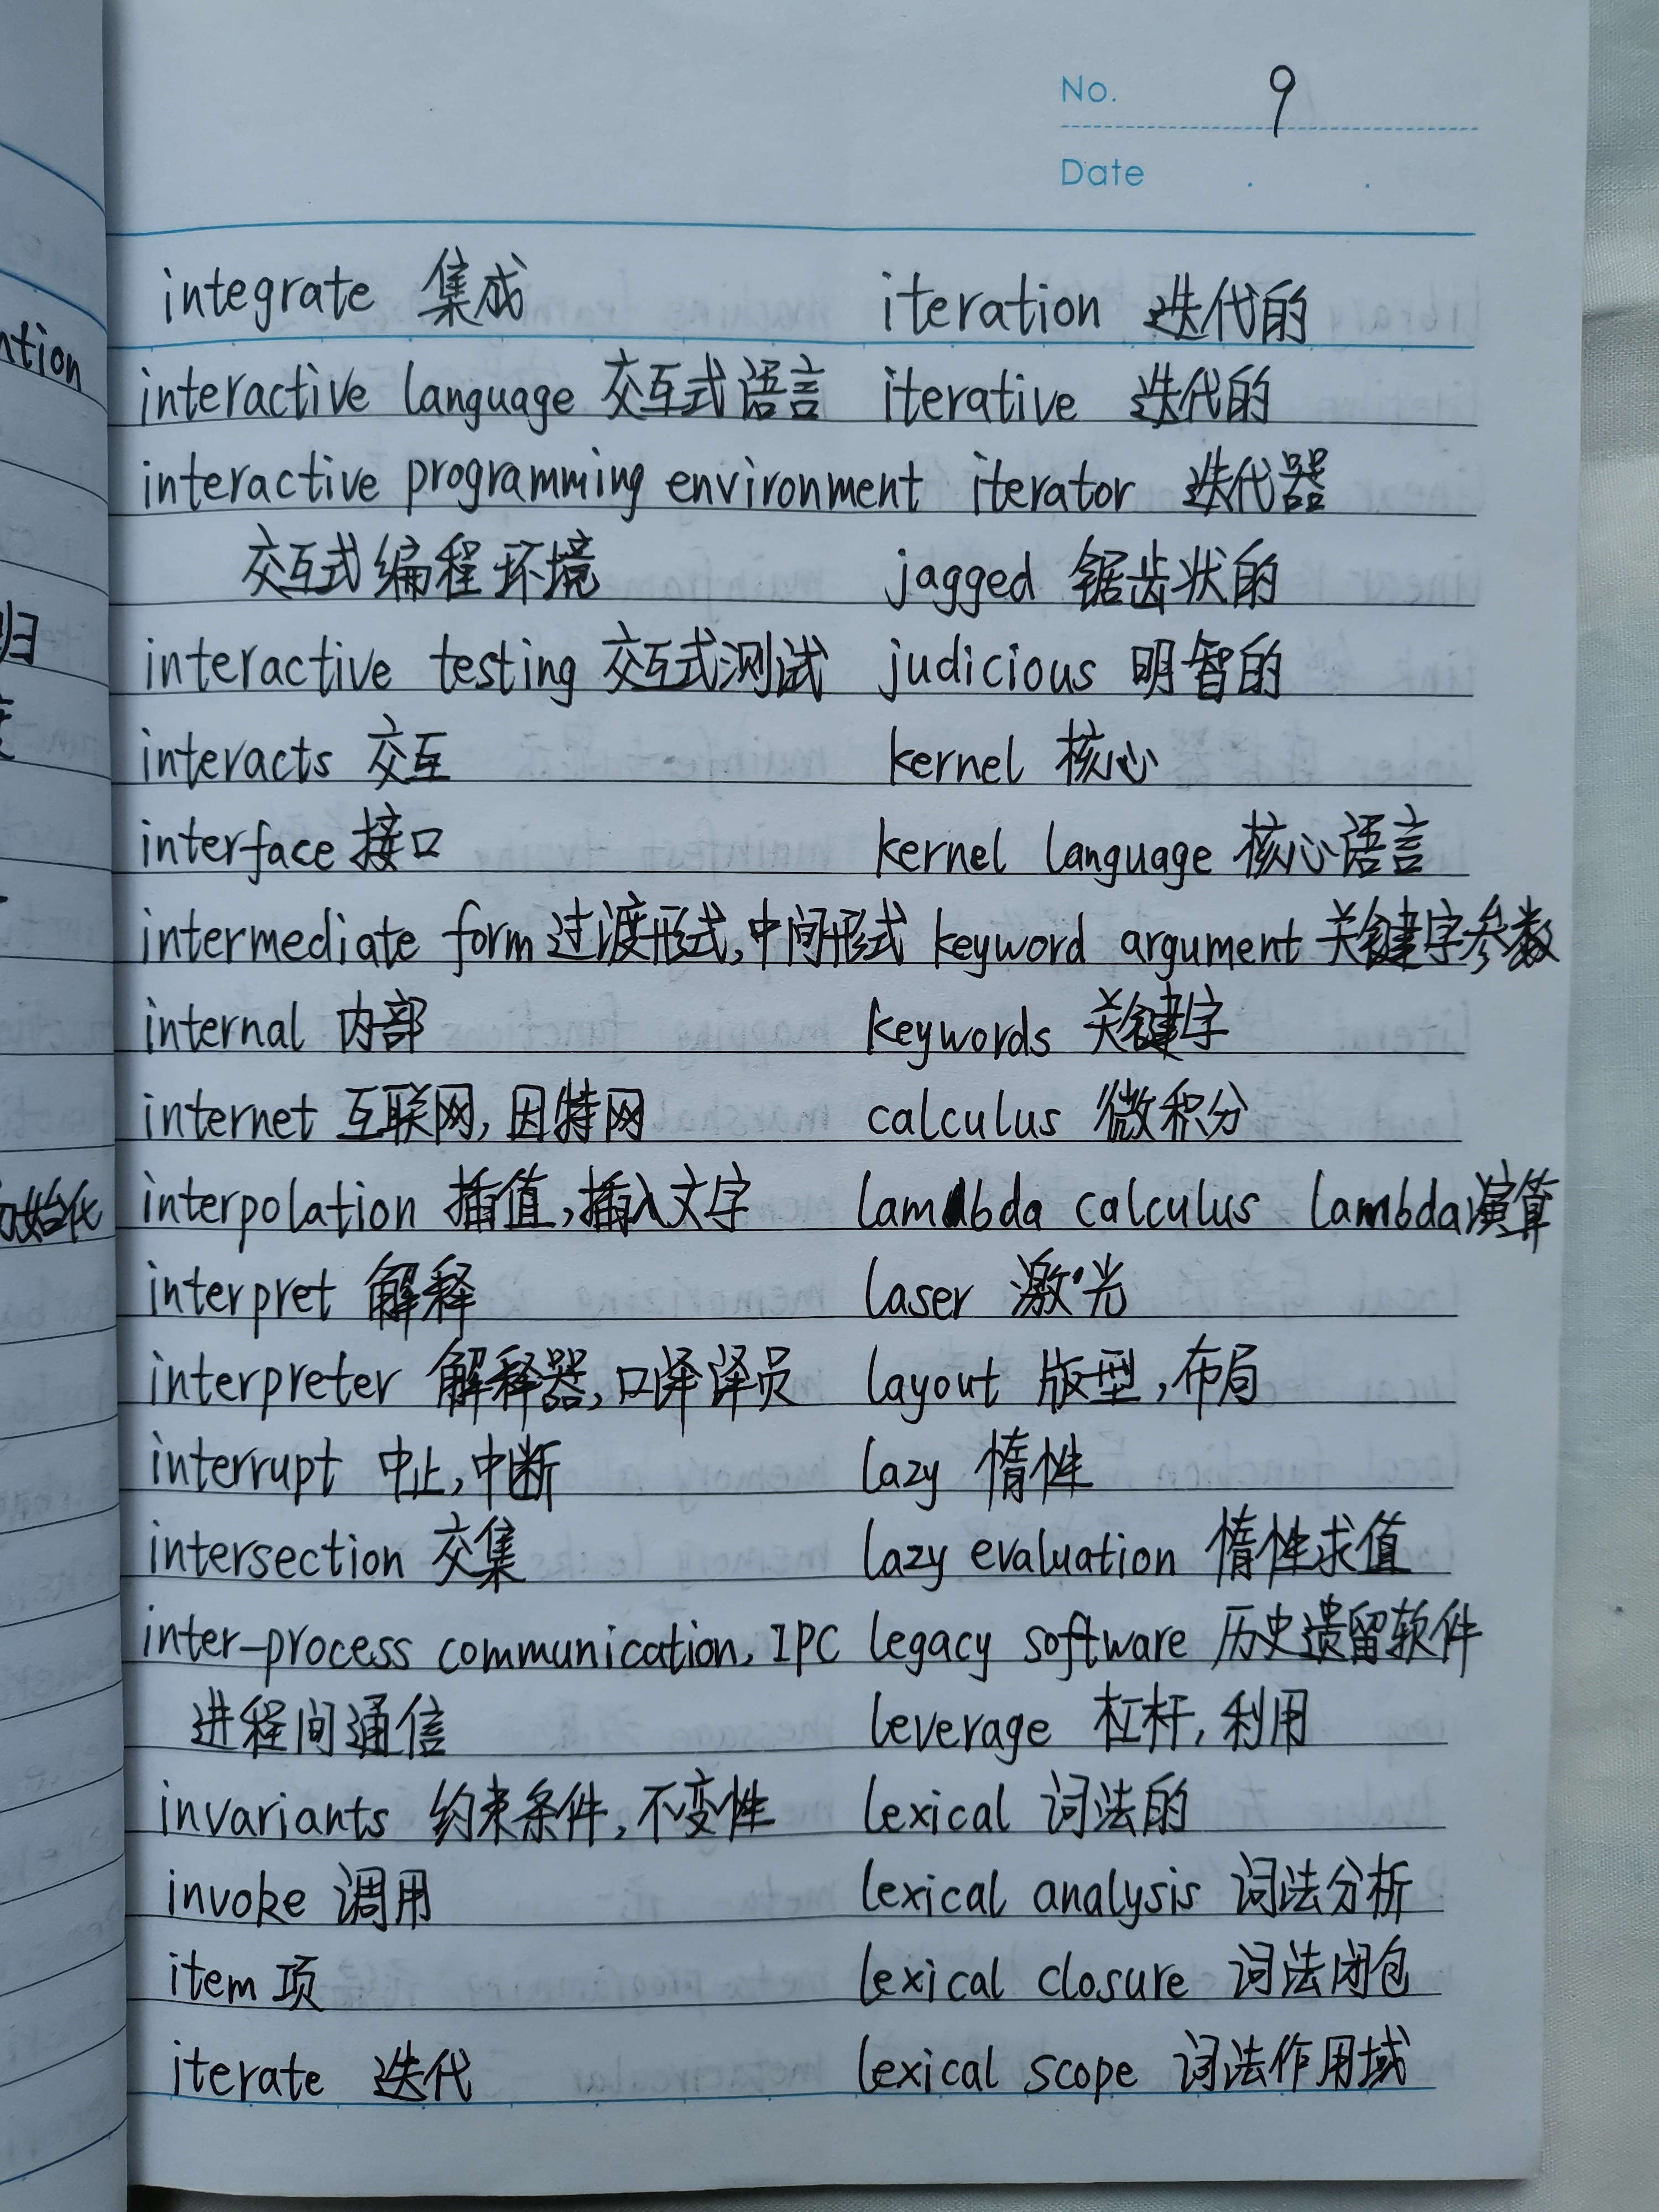 No. 9
Date
integrate 集成
interactive language 交互式语言
interactive programming environment
交互式编程环境
interactive testing 交互式测试
interacts 交互
interface 接口
intermediate form 过渡形式,中间形式
internal 内部
internet 互联网,因特网
interpolation 插值,插入文字
interpret 解释
interpreter 解释器,口译译员
interrupt 中止,中断
intersection 交集
inter-process communication, IPC
进程间通信
invariants 约束条件,不变性
invoke 调用
item 项
iterate 迭代
iteration 迭代的
iterative 迭代的
iterator 迭代器
jagged 锯齿状的
judicious 明智的
kernel 核心
kernel language 核心语言
keyword argument 关键字参数
keywords 关键字
calculus 微积分
lambda calculus lambda演算
laser 激光
layout 版型,布局
lazy 惰性
lazy evaluation 惰性求值
legacy software 历史遗留软件
leverage 杠杆,利用
lexical 词法的
lexical analysis 词法分析
lexical closure 词法闭包
lexical scope 词法作用域